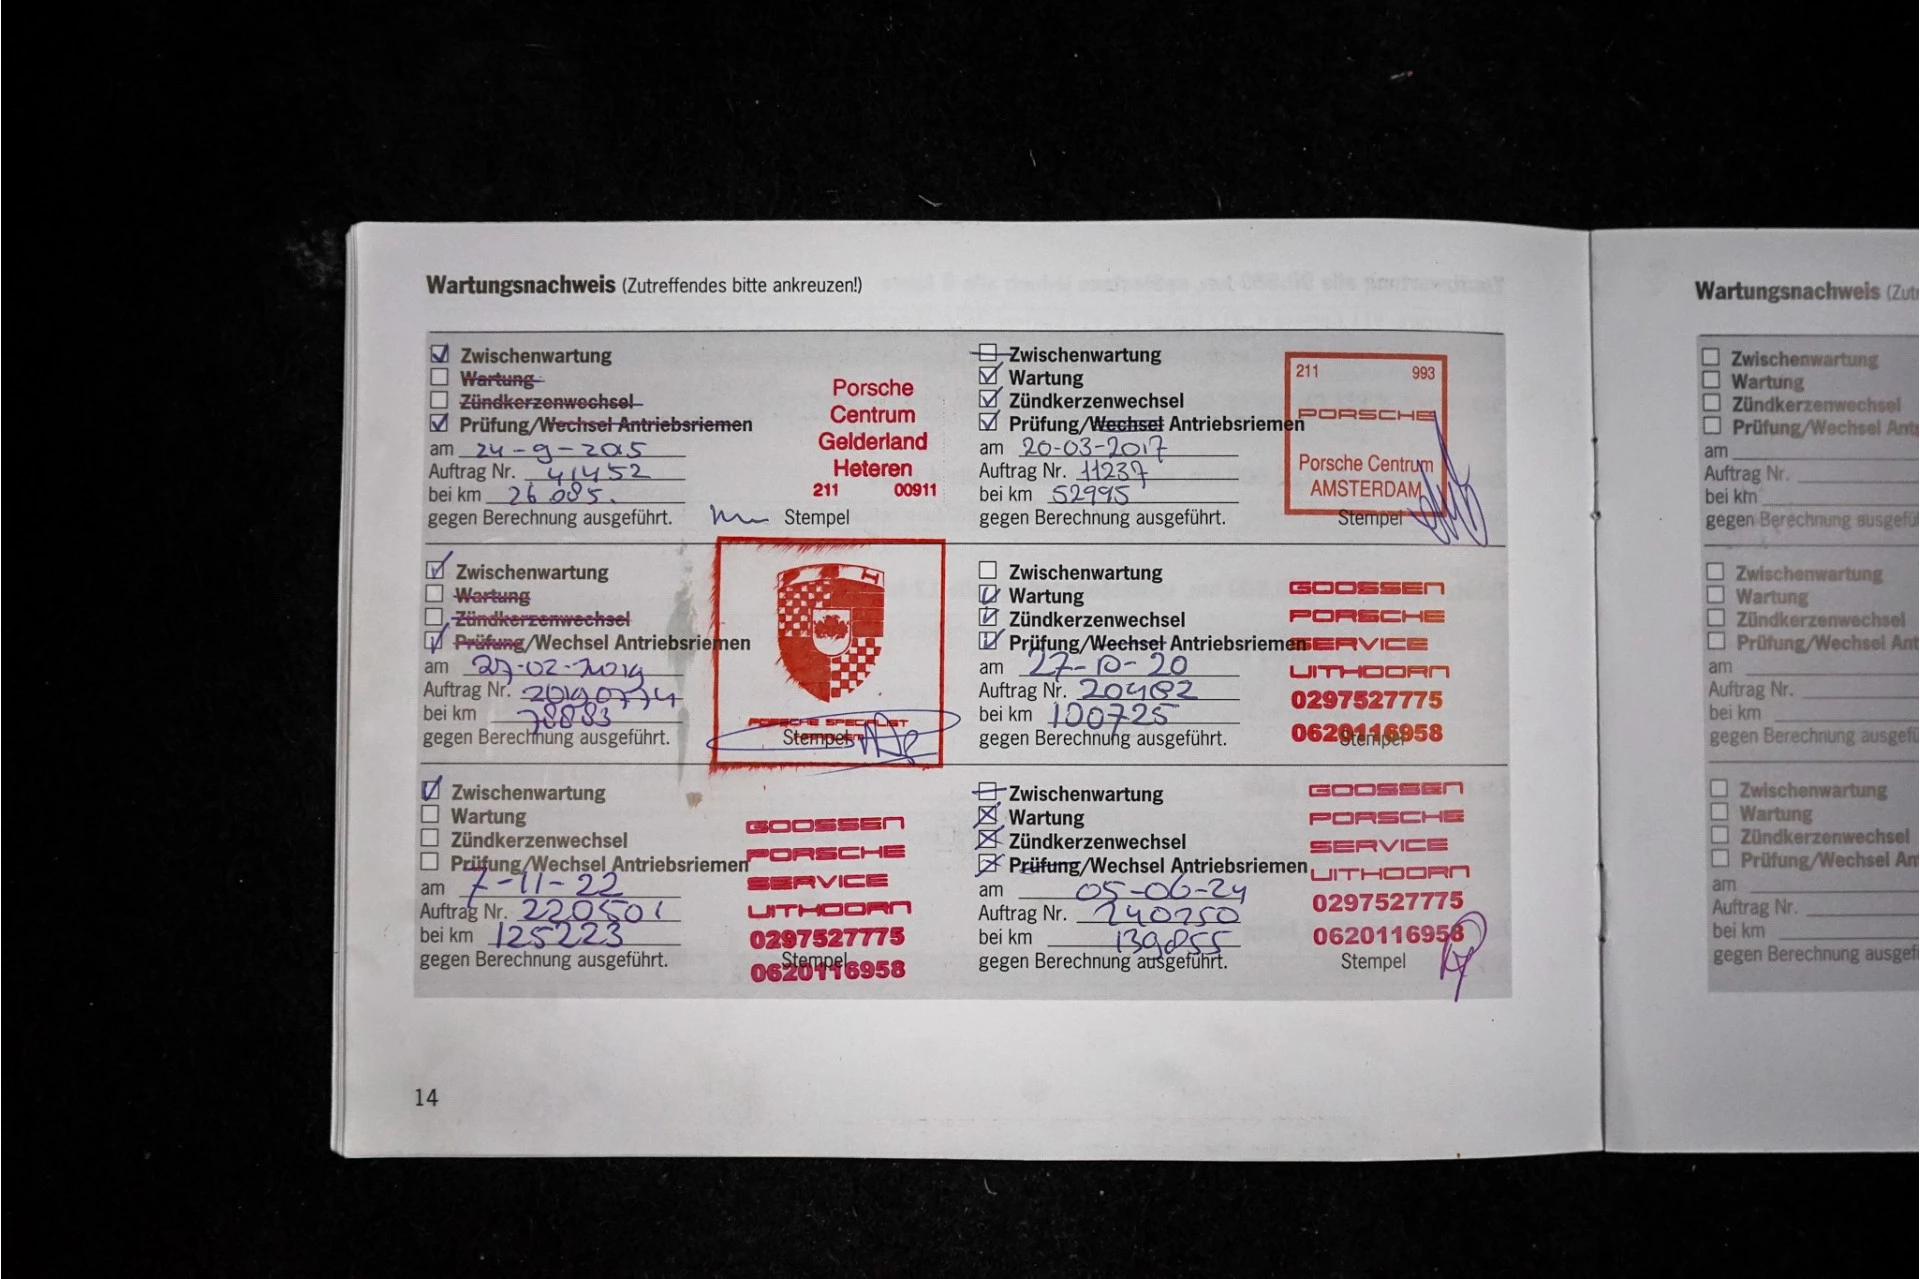 Wartungsnachweis (Zutreffendes bitte ankreuzen!)
Zwischenwartung
Wartung
Zündkerzenwechsel
Prüfung/Wechsel Antriebsriemen
am 24-9-2015
Auftrag Nr. 41452
bei km 26.085.
gegen Berechnung ausgeführt.
Porsche
Centrum
Gelderland
Heteren
211 00911
Stempel
Zwischenwartung
Wartung
Zündkerzenwechsel
Prüfung/Wechsel Antriebsriemen
am 20-03-2017
Auftrag Nr. 11237
bei km 52995
gegen Berechnung ausgeführt.
211 993
PORSCHE
Porsche Centrum
AMSTERDAM
Stempel
Zwischenwartung
Wartung
Zündkerzenwechsel
Prüfung/Wechsel Antriebsriemen
am 27-02-2019
Auftrag Nr.
bei km 78883
gegen Berechnung ausgeführt.
PORSCHE SPECIALIST
Stempel
Zwischenwartung
Wartung
Zündkerzenwechsel
Prüfung/Wechsel Antriebsriemen
am 27-10-20
Auftrag Nr. 20482
bei km 100725
gegen Berechnung ausgeführt.
GOOSSEN
PORSCHE
SERVICE
UITHOORN
0297527775
0620116958
Stempel
Zwischenwartung
Wartung
Zündkerzenwechsel
Prüfung/Wechsel Antriebsriemen
am 7-11-22
Auftrag Nr. 220501
bei km 125223
gegen Berechnung ausgeführt.
GOOSSEN
PORSCHE
SERVICE
UITHOORN
0297527775
Stempel
0620116958
Zwischenwartung
Wartung
Zündkerzenwechsel
Prüfung/Wechsel Antriebsriemen
am 05-06-24
Auftrag Nr. 240250
bei km 139855
gegen Berechnung ausgeführt.
GOOSSEN
PORSCHE
SERVICE
UITHOORN
0297527775
0620116958
Stempel
14
Wartungsnachweis
Zwischenwartung
Wartung
Zündkerzenwechsel
Prüfung/Wechsel
am
Auftrag Nr.
bei km
gegen Berechnung
Zwischenwartung
Wartung
Zündkerzenwechsel
Prüfung/Wechsel
am
Auftrag Nr.
bei km
gegen Berechnung
Zwischenwartung
Wartung
Zündkerzenwechsel
Prüfung/Wechsel
am
Auftrag Nr.
bei km
gegen Berechnung